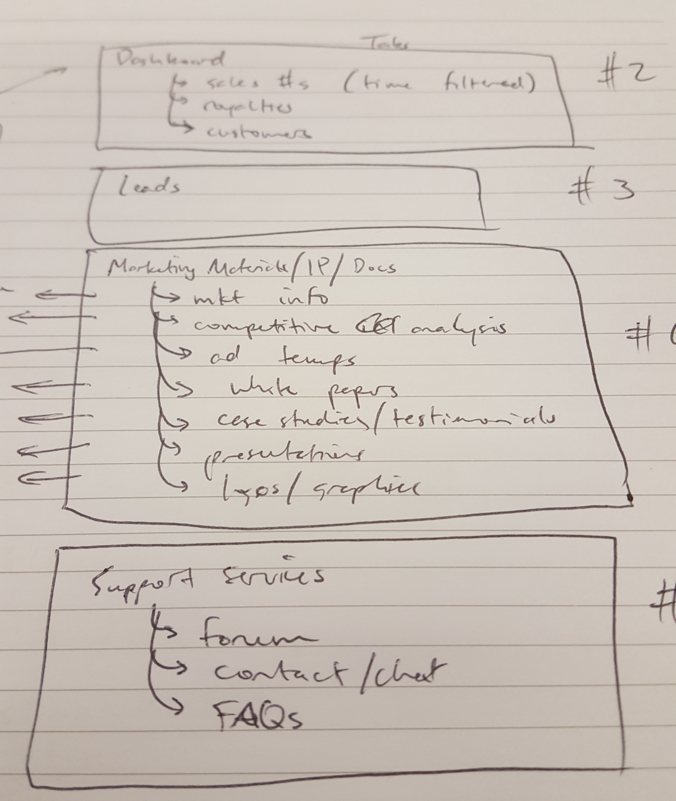 Dashboard
sales #s (time filtered) #2
royalties
customers
Leads #3
Marketing Materials/IP/Docs
mkt info
competitive analysis #
ad temps
white papers
case studies/testimonials
presentations
logos/graphics
Support Services
forum #
contact/chat
FAQs